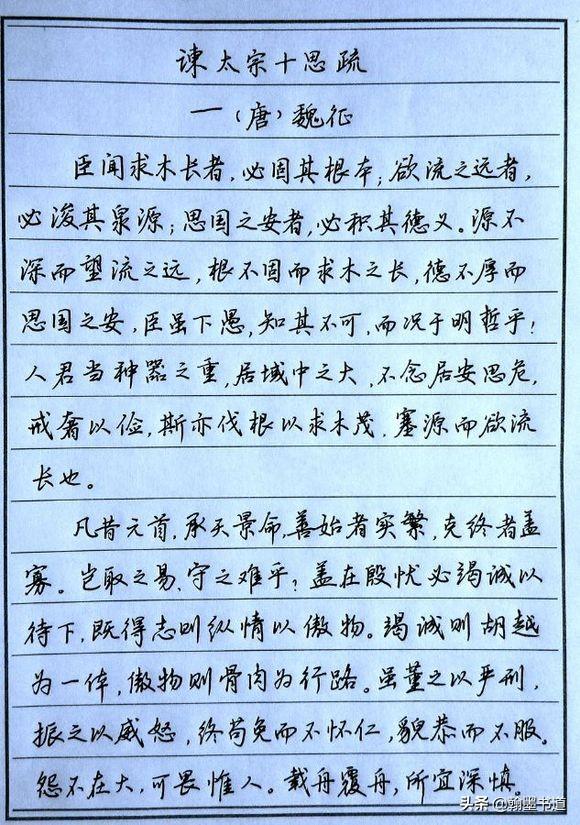 谏太宗十思疏
一（唐）魏征
臣闻求木长者，必固其根本；欲流之远者，
必浚其泉源；思国之安者，必积其德义。源不
深而望流之远，根不固而求木之长，德不厚而
思国之安，臣虽下愚，知其不可，而况于明哲乎！
人君当神器之重，居域中之大，不念居安思危，
戒奢以俭，斯亦伐根以求木茂，塞源而欲流
长也。
凡昔元首，承天景命，善始者实繁，克终者盖
寡。岂取之易、守之难乎？盖在殷忧必竭诚以
待下，既得志则纵情以傲物。竭诚则胡越
为一体，傲物则骨肉为行路。虽董之以严刑，
振之以威怒，终苟免而不怀仁，貌恭而不服。
怨不在大，可畏惟人。载舟覆舟，所宜深慎。
头条 @翰墨书道